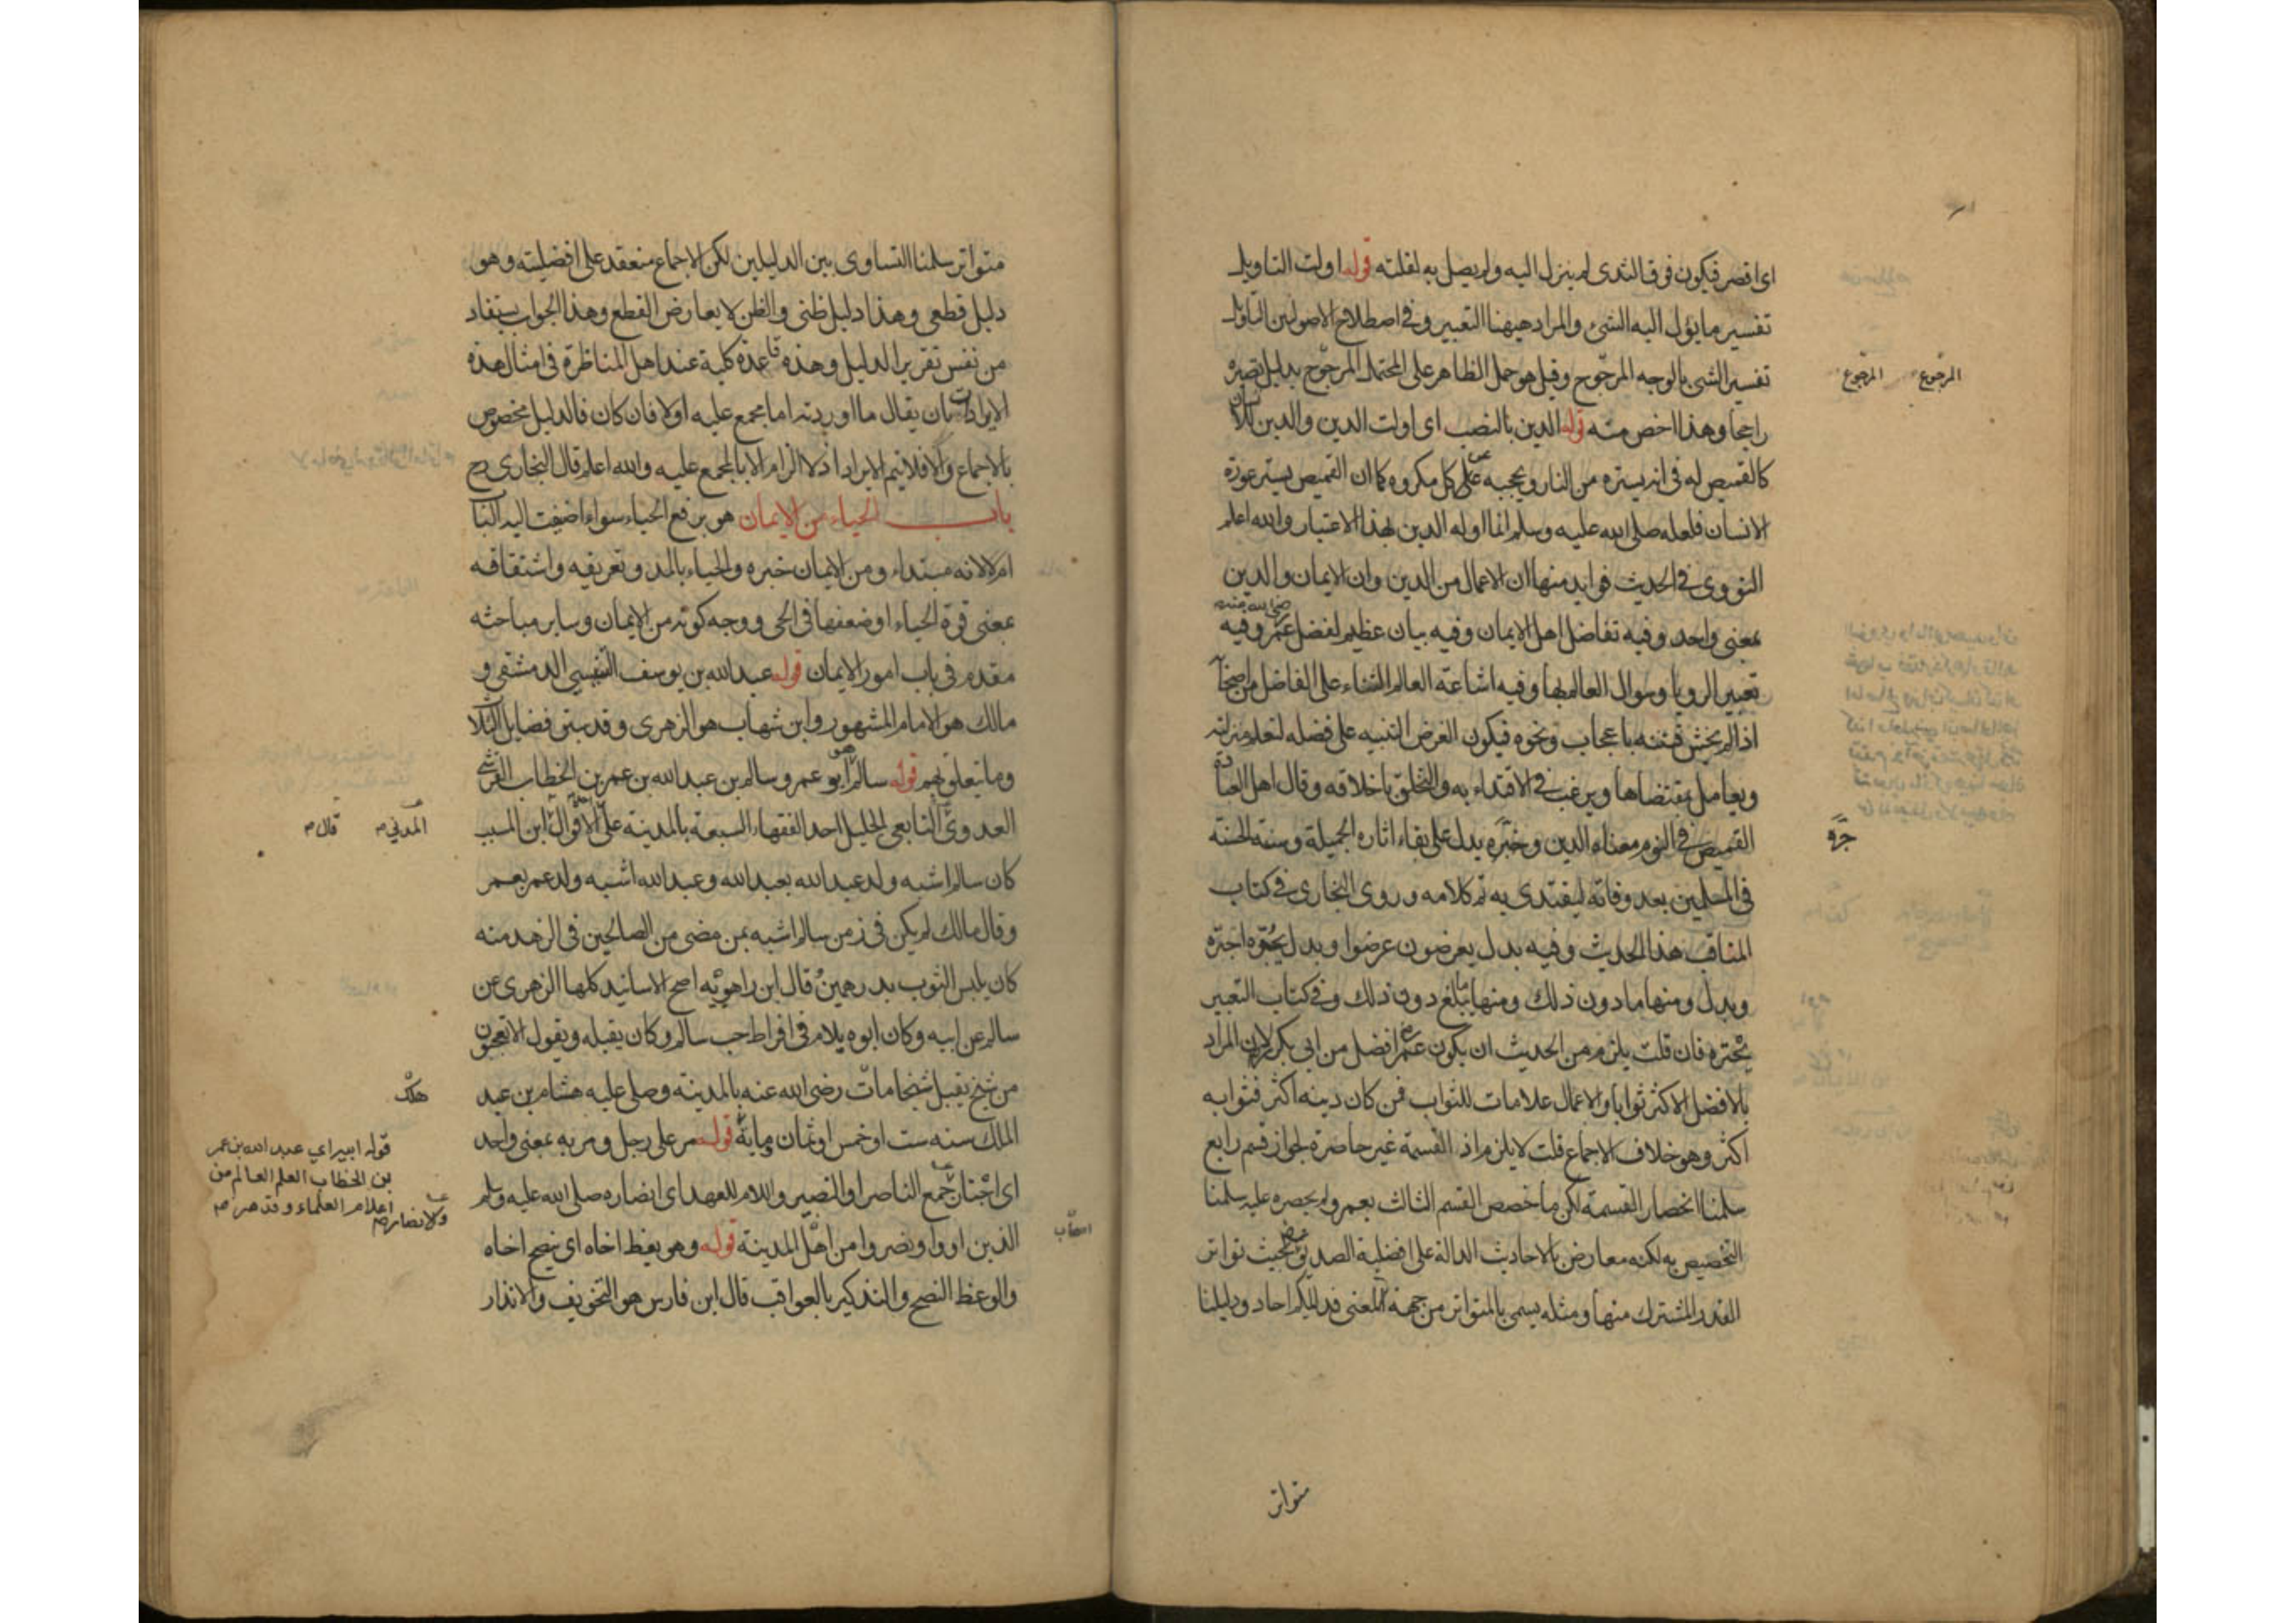 اى اقصر فيكون فوق الثدى لم ينزل اليه ولم يصل به لقلته قوله اولت التاويل
تفسير ما يؤل اليه الشئ والمراد هيهنا التعبير وفى اصطلاح الاصولين التاويل
تفسير الشئ بالوجه المرجوح وقيل هو حمل الظاهر على المحتمل المرجوح بدليل تصيره
راجحا وهذا اخص منه قوله الدين بالنصب اى اولت الدين والدين للانسان
كالقميص له فى انه يستره من النار ويحجبه عن كل مكروه كما ان القميص يستر عورة
الانسان فلعله صلى الله عليه وسلم انما اوله الدين بهذا الاعتبار والله اعلم
النووى فى الحديث فوايد منها ان الاعمال من الدين وان الايمان والدين
بمعنى واحد وفيه تفاضل اهل الايمان وفيه بيان عظيم لفضل عمر رضى الله عنه وفيه
تعبير الرويا وسوال العالم بها وفيه اشاعة العالم الثناء على الفاضل من اصحابه
اذا لم يخش فتنة باعجاب ونحوه فيكون الغرض التنبيه على فضله لتعلم منزلته
ويعامل بمقتضاها ويرغب فى الاقتداء به والتخلق باخلاقه وقال اهل العبارة
القميص فى النوم معناه الدين وجره يدل على بقاء اثاره الجميلة وسنته الحسنة
فى المسلمين بعد وفاته ليقتدى به تم كلامه وروى البخارى فى كتاب
المناقب هذا الحديث وفيه بدل يعرضون عرضوا وبدل يجره اجتره
وبدل ومنها ما دون ذلك ومنها ما يبلغ دون ذلك وفى كتاب التعبير
يجتره فان قلت يلزم من الحديث ان يكون عمر افضل من ابى بكر لان المراد
بالافضل الاكثر ثوابا والاعمال علامات للثواب فمن كان دينه اكثر فثوابه
اكثر وهو خلاف الاجماع قلت لا يلزم اذ القسمة غير حاصرة لجواز قسم رابع
سلمنا انحصار القسمة لكن ما خصص القسم الثالث بعمر ولم يحصره عليه سلمنا
التخصيص به لكنه معارض بالاحاديث الدالة على افضلية الصديق بحيث تواتر
القدر المشترك منها ومثله يسمى بالمتواتر من جهة المعنى فدليلكم احاد ودليلنا
متواتر
المرجوع المرجوع
جره
متواتر سلمنا التساوى بين الدليلين لكن الاجماع منعقد على افضليته وهو
دليل قطعى وهذا دليل ظنى والظن لا يعارض القطع وهذا الجواب يستفاد
من نفس تقرير الدليل وهذه قاعدة كلية عند اهل المناظرة فى امثال هذه
الايرادات بان يقال ما اوردته اما مجمع عليه اولا فان كان فالدليل مخصوص
بالاجماع والا فلا يتم الايراد اذ لا الزام الا بالمجمع عليه والله اعلم قال البخارى رح
باب الحياء من الايمان هو برفع الحياء سواء اضيفت اليه الباب
ام لا لانه مبتداء ومن الايمان خبره والحياء بالمد وتعريفه واشتقاقه
بمعنى قوة الحياء او ضعفها فى الحى ووجه كونه من الايمان وساير مباحثه
مقدم فى باب امور الايمان قوله عبد الله بن يوسف التنيسى الدمشقى و
مالك هو الامام المشهور وابن شهاب هو الزهرى وقد سبق فضايل الثلاثة
وما يتعلق بهم قوله سالم هو ابو عمرو سالم بن عبد الله بن عمر بن الخطاب القرشى
العدوى التابعى الجليل احد الفقهاء السبعة بالمدينة على احد الاقوال ابن المسيب
كان سالم اشبه ولد عبد الله بعبد الله وعبد الله اشبه ولد عمر بعمر
وقال مالك لم يكن فى زمن سالم اشبه بمن مضى من الصالحين فى الزهد منه
كان يلبس الثوب بدرهمين قال ابن راهويه اصح الاسانيد كلها الزهرى عن
سالم عن ابيه وكان ابوه يلام فى افراط حب سالم وكان يقبله ويقول الا تعجبون
من شيخ يقبل شيخا مات رضى الله عنه بالمدينة وصلى عليه هشام بن عبد
الملك سنه ست او خمس او ثمان ومايه قوله مر على رجل ومر به بمعنى واحد
اى اجتاز جمع الناصر او النصير واللام للعهد اى انصاره صلى الله عليه وسلم
الذين اووا ونصروا من اهل المدينة قوله وهو يعظ اخاه اى ينصح اخاه
والوعظ النصح والتذكير بالعواقب قال ابن فارس هو التخويف والانذار
المدنى م قال م
قوله ابيه اي عبد الله بن عمر
بن الخطاب العلم العالم من
اعلام العلماء وقد مر م
والانصار م